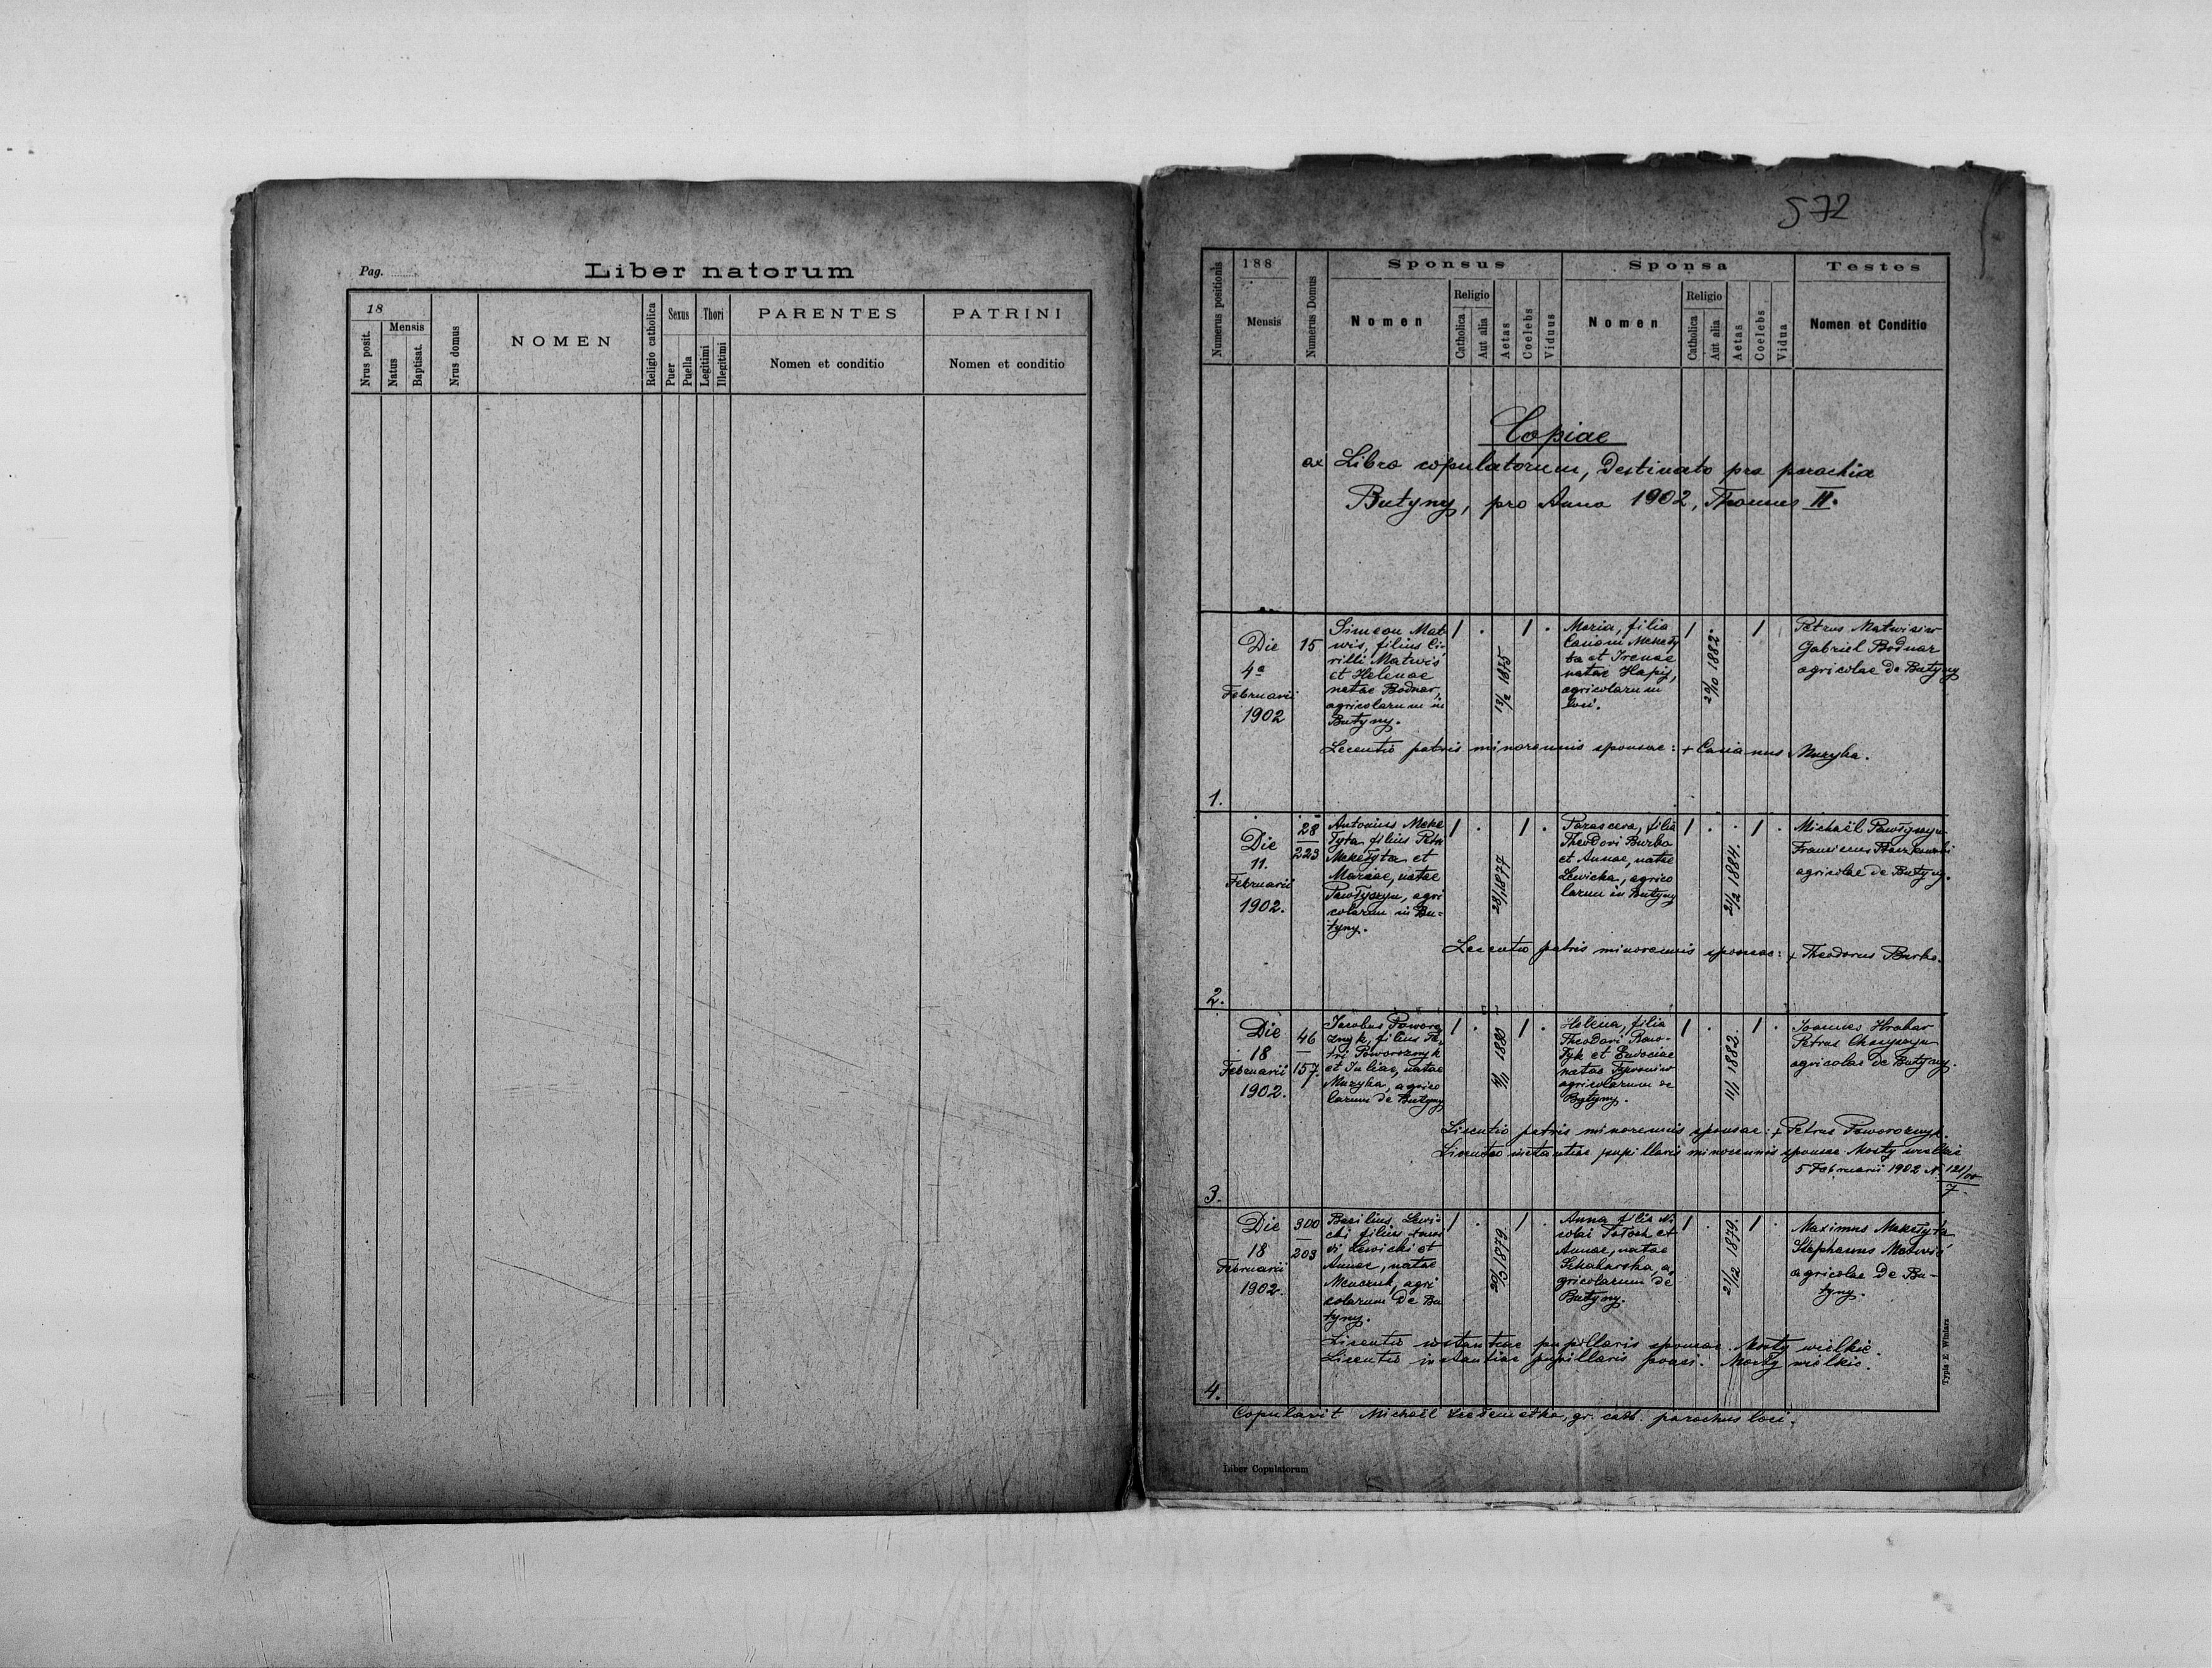 Pag.
Liber natorum
18
Nrus posit.
Mensis
Natus
Baptisat.
Nrus domus
NOMEN
Religio catholica
Sexus
Puer
Puella
Thori
Legitimi
Illegitimi
PARENTES
Nomen et conditio
PATRINI
Nomen et conditio
572
Numerus positionis
188
Mensis
Numerus Domus
Sponsus
Nomen
Religio
Catholica
Aut alia
Aetas
Coelebs
Viduus
Sponsa
Nomen
Religio
Catholica
Aut alia
Aetas
Coelebs
Vidua
Testes
Nomen et Conditio
Copiae
ex Libro copulatorum, destinato pro parochia
Butyny, pro Anno 1902, Thomus II.
1.
Die
4a
Februarii
1902
15
Simeon Mat
wis, filius Ci-
rilli Matwis
et Helenae
natae Bodnar,
agricolarum in
Butyny.
1 . 13/2 1875 1 .
Maria, filia
Casiani
et Irenae
natae Hapij,
agricolarum
loci.
1 20/10 1882. 1
Petrus Matwisiw
Gabriel Bodnar
agricolae de Butyny
Licentio patris minorennis sponsae: + Casianus Muzyka.
2.
Die
11.
Februarii
1902.
28
223
Antonius Meke
tyta, filius Petri
Mekełyta et
Mariae, natae
Pawłyszyn, agri
colarum in Bu-
tyny.
1 . 28/1 1877 1 .
Parasceva, filia
Theodori Burba
et Annae, natae
Lewicka, agrico
larum in Butyny
1 . . 21/2 1884. 1 .
Michaël Pawłyszyn
Franciscus
agricolae de Butyny.
Licentio patris minorennis sponsae: + Theodorus Burba.
3.
Die
18
Februarii
1902.
46
157.
Jacobus Poworoz
znyk, filius Pe
tri Poworoznyk
et Juliae, natae
Muzyka, agrico
larum de Butyny
1 . 1880 1 .
Helena, filia
Theodori Paw-
łyk et Eudociae
natae
agricolarum de
Butyny.
1 . 11/1 1882. 1 .
Joannes Hrabar
Petrus
agricolae de Butyny.
Licentio patris minorennis sponsae: + Petrus Poworoznyk.
Licentio instantiae pupillaris minorennis sponsae Mosty wielkie
5 Februarii 1902 N. 121/00
7.
4.
Die
18
Februarii
1902.
300
203
Basilius Lewi-
cki filius
Lewicki et
Annae, natae
agri
colarum de Bu
tyny.
1 . 20/3 1879. 1 .
Anna filia Ni
colai et
Annae, natae
a-
gricolarum de
Butyny.
1 . 21/12 1879. 1 .
Maximus Mekełyta
Stephanus Matwis
agricolae de Bu-
tyny.
Licentio instantiae pupillaris sponsae Mosty wielkie.
Licentio instantiae pupillaris sponsi. Mosty wielkie.
Copulavit Michaël gr. cath. parochus loci.
Liber Copulatorum
Typis E. Winiarz